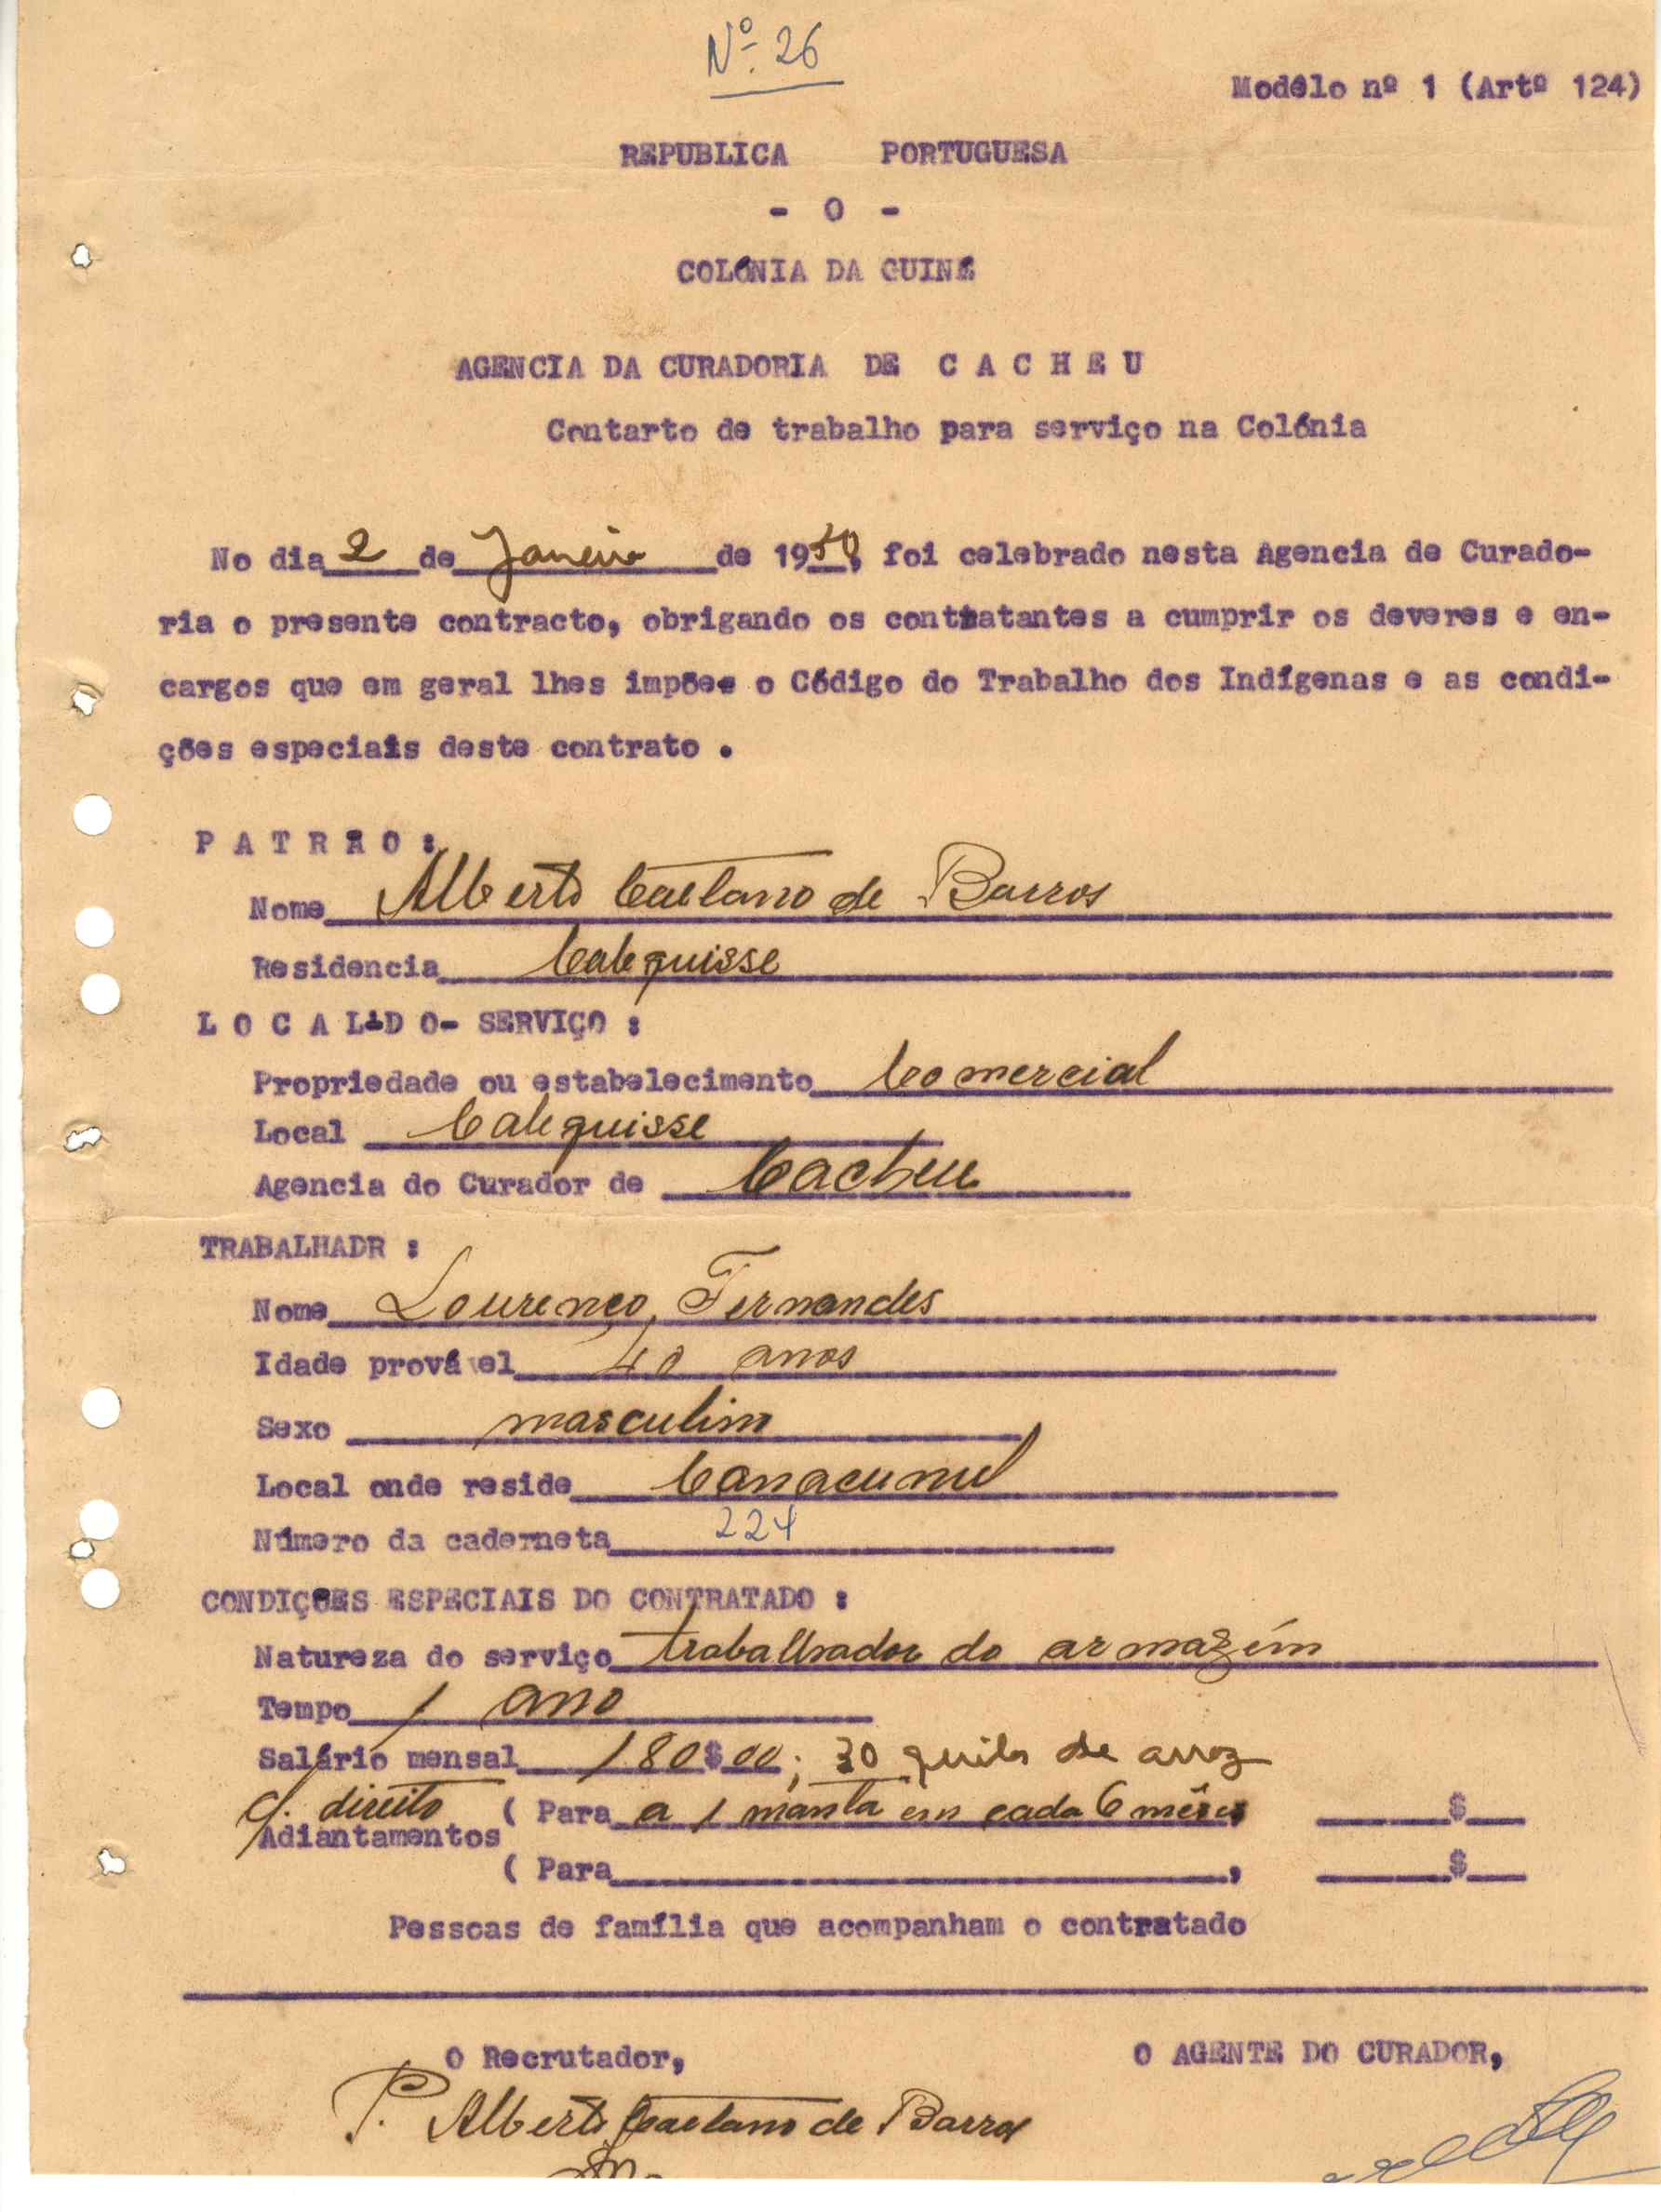 Nº. 26
Modêlo nº 1 (Artº 124)
REPUBLICA PORTUGUESA
- O -
COLÓNIA DA GUINÉ
AGENCIA DA CURADORIA DE C A C H E U
Contarto de trabalho para serviço na Colónia
No dia 2 de Janeiro de 1950, foi celebrado nesta Agencia de Curado-
ria o presente contracto, obrigando os conttatantes a cumprir os deveres e en-
cargos que em geral lhes impões o Código do Trabalho dos Indígenas e as condi-
ções especiais deste contrato .
P A T R Ã O :
Nome Alberto Caetano de Barros
Residencia Calequisse
L O C A L D O - SERVIÇO :
Propriedade ou estabelecimento Comercial
Local Calequisse
Agencia do Curador de Cacheu
TRABALHADR :
Nome Lourenço Fernandes
Idade provável 40 anos
Sexo masculino
Local onde reside Canacumul
Número da caderneta 224
CONDIÇÕES ESPECIAIS DO CONTRATADO :
Natureza do serviço trabalhador do armazém
Tempo 1 ano
Salário mensal 180$00; 30 quilos de arroz
c/. direito ( Para a 1 manta em cada 6 mêses $
Adiantamentos
( Para , $
Pessoas de família que acompanham o contratado
O Recrutador, O AGENTE DO CURADOR,
P. Alberto Caetano de Barros